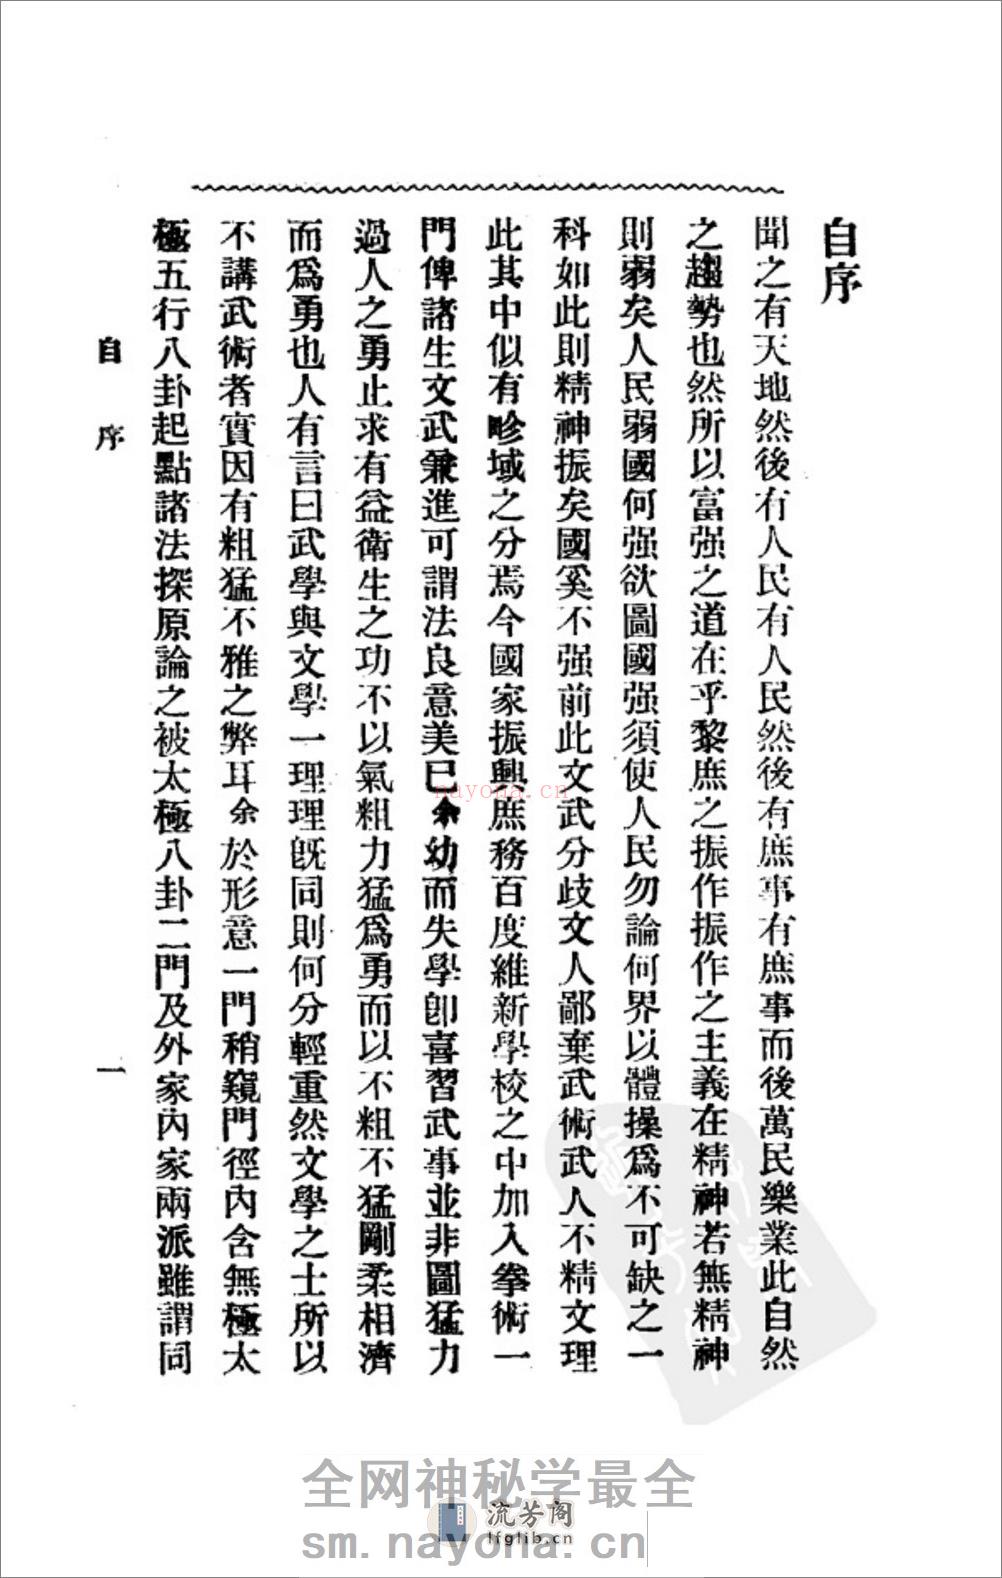 自序
聞之有天地然後有人民有人民然後有庶事有庶事而後萬民樂業此自然
之趨勢也然所以富强之道在乎黎庶之振作振作之主義在精神若無精神
則弱矣人民弱國何强欲圖國强須使人民勿論何界以體操爲不可缺之一
科如此則精神振矣國奚不强前此文武分歧文人鄙棄武術武人不精文理
此其中似有畛域之分焉今國家振興庶務百度維新學校之中加入拳術一
門俾諸生文武兼進可謂法良意美已余幼而失學卽喜習武事並非圖猛力
過人之勇止求有益衛生之功不以氣粗力猛爲勇而以不粗不猛剛柔相濟
而爲勇也人有言曰武學與文學一理理旣同則何分輕重然文學之士所以
不講武術者實因有粗猛不雅之弊耳余於形意一門稍窺門徑內含無極太
極五行八卦起點諸法探原論之被太極八卦二門及外家內家兩派雖謂同
自序
一
nayona.cn
全网神秘学最全
流芳阁
lfglib.cn
sm.nayona.cn